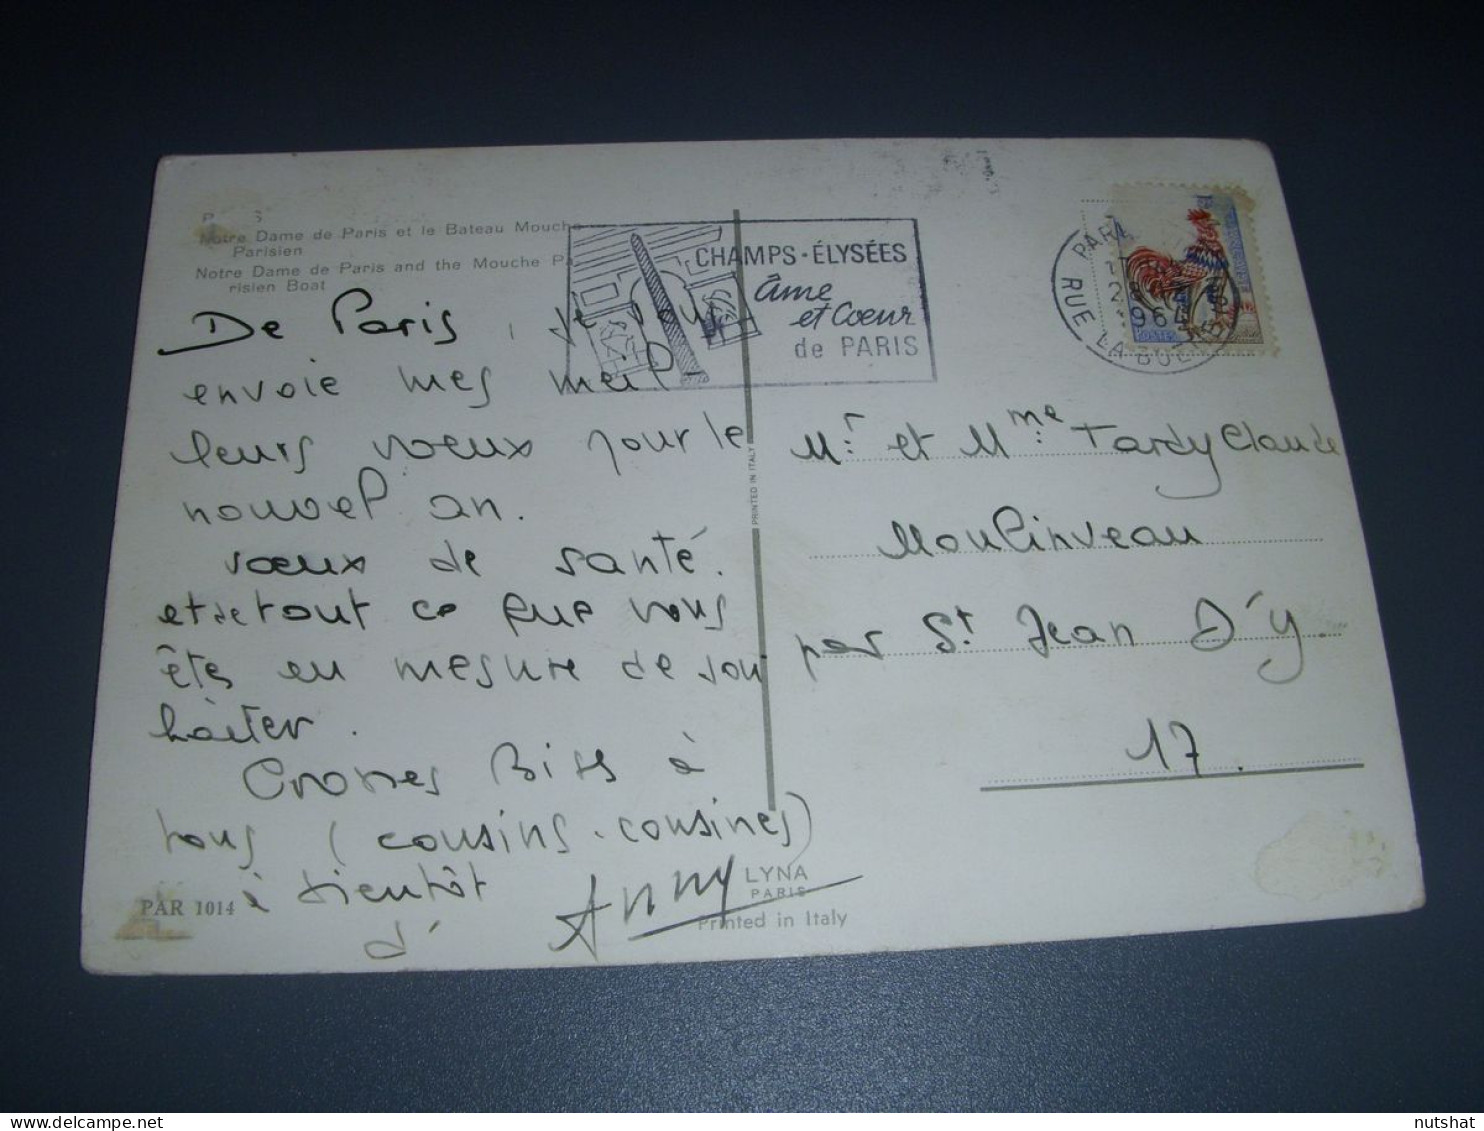 Notre Dame de Paris et le Bateau Mouche
Parisien
Notre Dame de Paris and the Mouche Pa-
risien Boat
De Paris, je vous
envoie mes meil-
leurs voeux pour le
nouvel an.
voeux de santé.
et de tout ce que vous
êtes en mesure de sou
haiter.
Grosses Bises à
tous (cousins-cousines)
à bientôt
Anny
PAR 1014
LYNA
PARIS
Printed in Italy
PRINTED IN ITALY
CHAMPS-ÉLYSÉES
âme
et Coeur
de PARIS
PARIS
RUE LA BOETIE
1964
POSTES
Mr. et Mme. Tardy Claude
Moulinveau
par St Jean D'y.
17.
nutshat